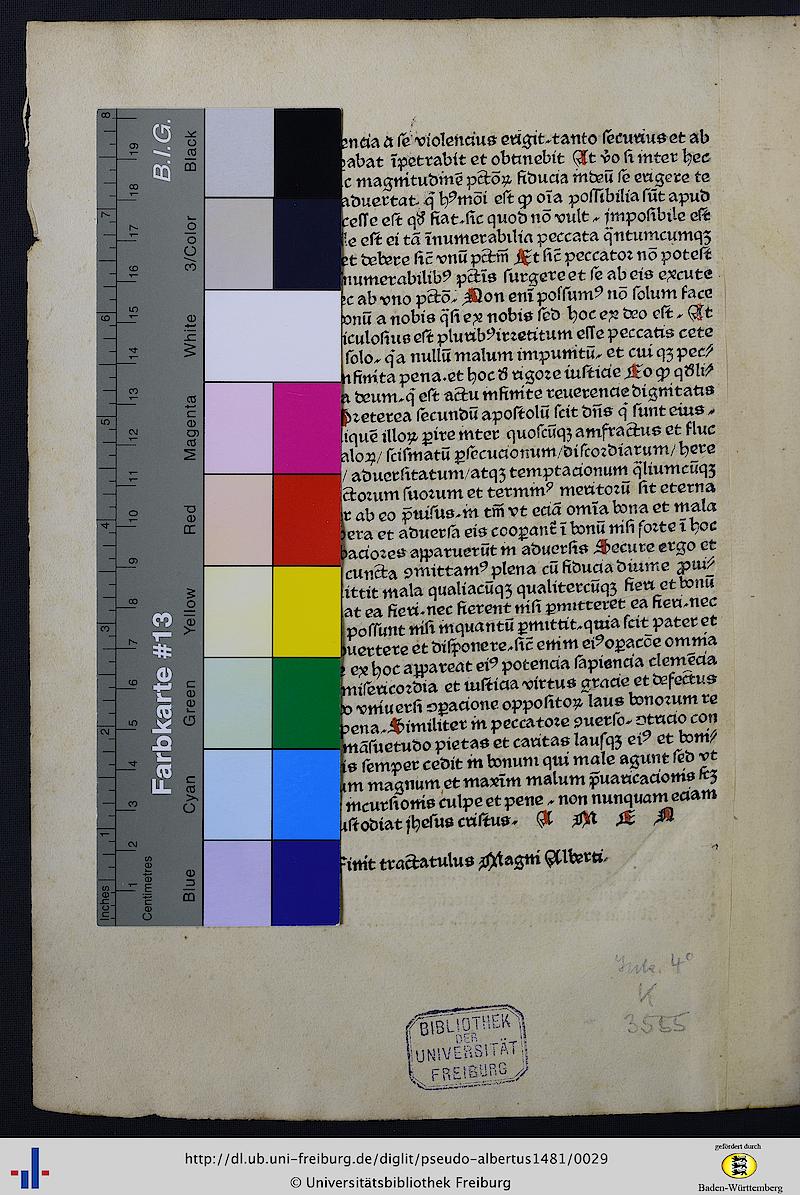 encia a se violencius erigit. tanto securius et ab
abat īpetrabit et obtinebit At v̄o si inter hec
c magnitudinē pctōꝝ fiducia indeū se erigere te
aduertat. q̄ hꝰmōi est ꝙ oīa possibilia sūt apud
cesse est qđ fiat. sic quod nō vult. jmposibile est
le est ei tā īnumerabilia peccata q̄ntumcumqꝫ
et debere sic̄ vnū pctm̄ Et sic̄ peccator nō potest
numerabilibꝰ pctīs surgere et se ab eis excute
c ab vno pctō. Non enī possumꝰ nō solum face
onū a nobis q̄si ex nobis sed hoc ex deo est. At
iculosius est pluribꝰ irretitum esse peccatis cete
solo. q̄a nullū malum impunitū. et cui qꝫ pec/
nfinita pena. et hoc đ rigore iusticie Eo ꝙ qđli/
a deum. q̄ est actu infinite reuerencie dignitatis
Preterea secundū apostolū scit dn̄s q̄ sunt eius.
iquē illoꝝ ꝑire inter quoscūqꝫ amfractus et fluc
aloꝝ/ scismatū ꝑsecucionum/discordiarum/ here
/ aduersitatum/atqꝫ temptacionum q̄liumcūqꝫ
ctorum suorum et terminꝰ meritorū sit eterna
r ab eo p̄uisus. in tm̄ vt eciā omīa bona et mala
era et aduersa eis coopant̄ ī bonū nisi forte ī hoc
baciores apparuerūt in aduersis Secure ergo et
cuncta ꝯmittamꝰ plena cū fiducia diuine ꝓui/
ittit mala qualiacūqꝫ qualitercūqꝫ fieri et bonū
at ea fieri. nec fierent nisi ꝑmitteret ea fieri. nec
possunt nisi inquantū ꝑmittit. quia scit pater et
uertere et disponere. sic̄ enim eiꝰ oꝑacōe omnia
ex hoc appareat eiꝰ potencia sapiencia clemēcia
misericordia et iusticia virtus gracie et defectus
o vniuersi ꝯꝑacione oppositoꝝ laus bonorum re
pena. Similiter in peccatore ꝯuerso. ꝯtricio con
māsuetudo pietas et caritas lausqꝫ eiꝰ et boni/
is semper cedit in bonum qui male agunt sed vt
um magnum et maxīm malum p̄uaricacionis scꝫ
incursionis culpe et pene. non nunquam eciam
ustodiat jhesus cristus. A M E N
Finit tractatulus Magni Alberti.
Ink. 4°
K
3555
BIBLIOTHEK
DER
UNIVERSITÄT
FREIBURG
Inches
Centimetres
1 2 3 4 5 6 7 8
1 2 3 4 5 6 7 8 9 10 11 12 13 14 15 16 17 18 19
Farbkarte #13
B.I.G.
Blue
Cyan
Green
Yellow
Red
Magenta
White
3/Color
Black
http://dl.ub.uni-freiburg.de/diglit/pseudo-albertus1481/0029
© Universitätsbibliothek Freiburg
gefördert durch
Baden-Württemberg